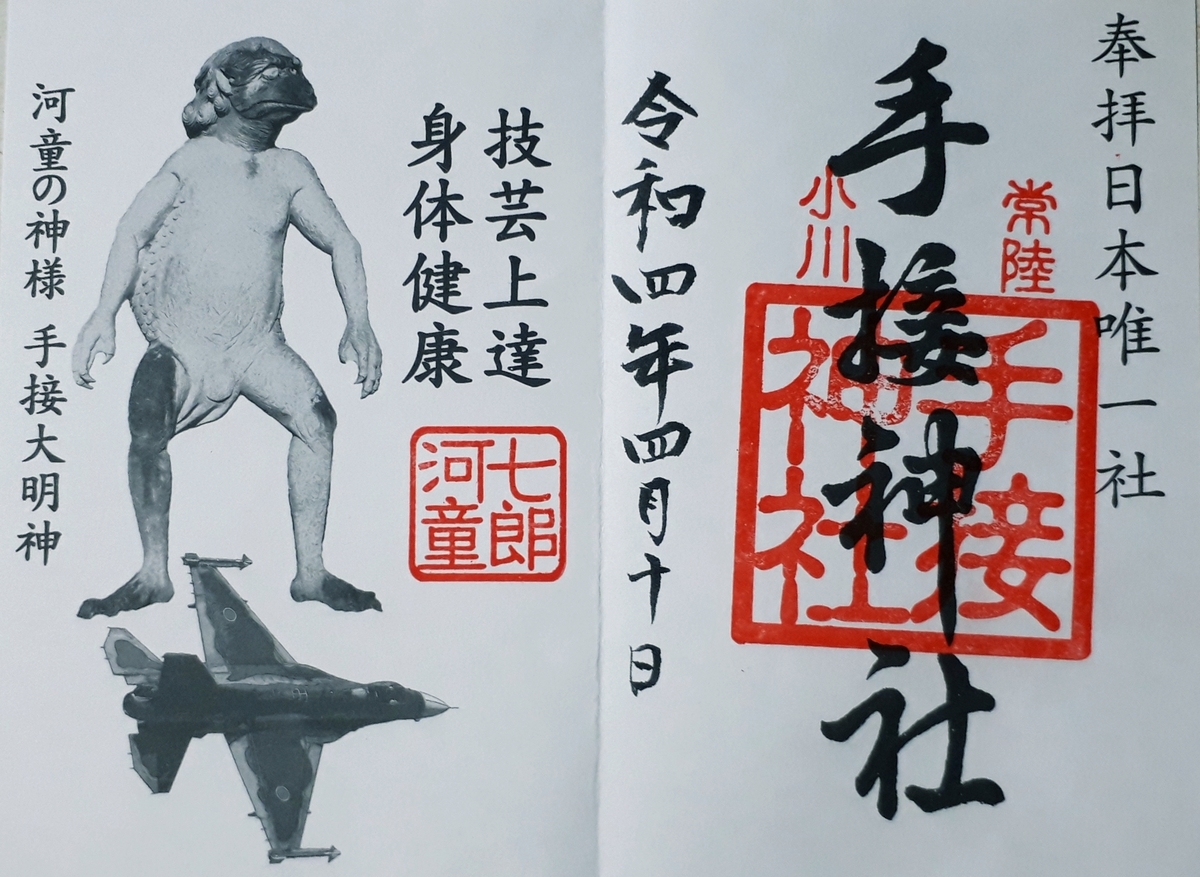 奉拝日本唯一社
常陸
小川
手接神社
手接
神社
令和四年四月十日
技芸上達
身体健康
七郎
河童
河童の神様 手接大明神